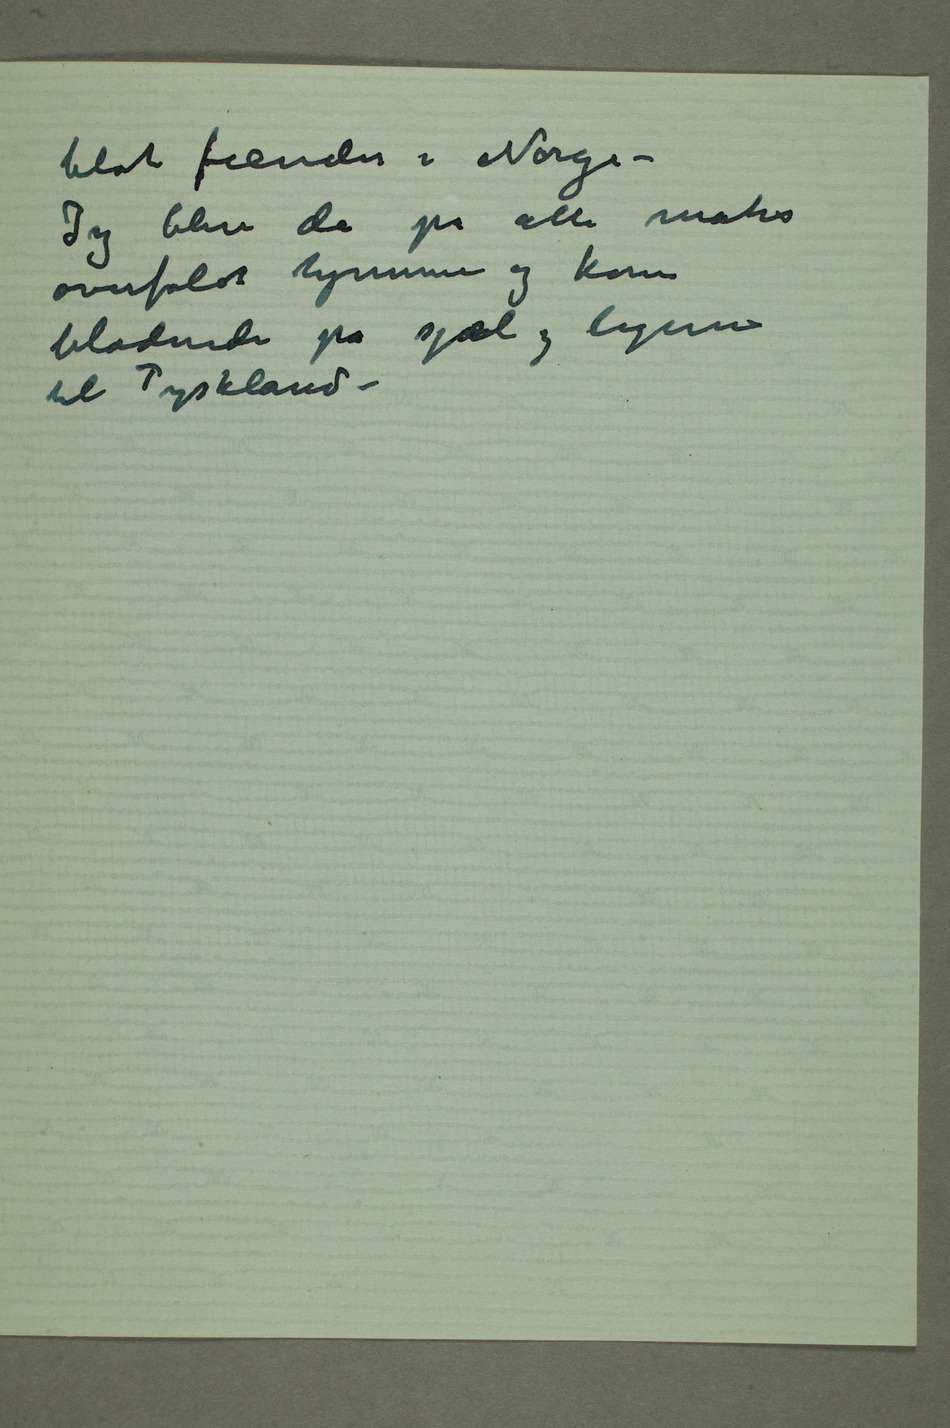 blot fiender i Norge –
Jeg blev da på alle måter
overfaldt hjemme og kom
blødende på sjæl og legeme
til Tyskland –